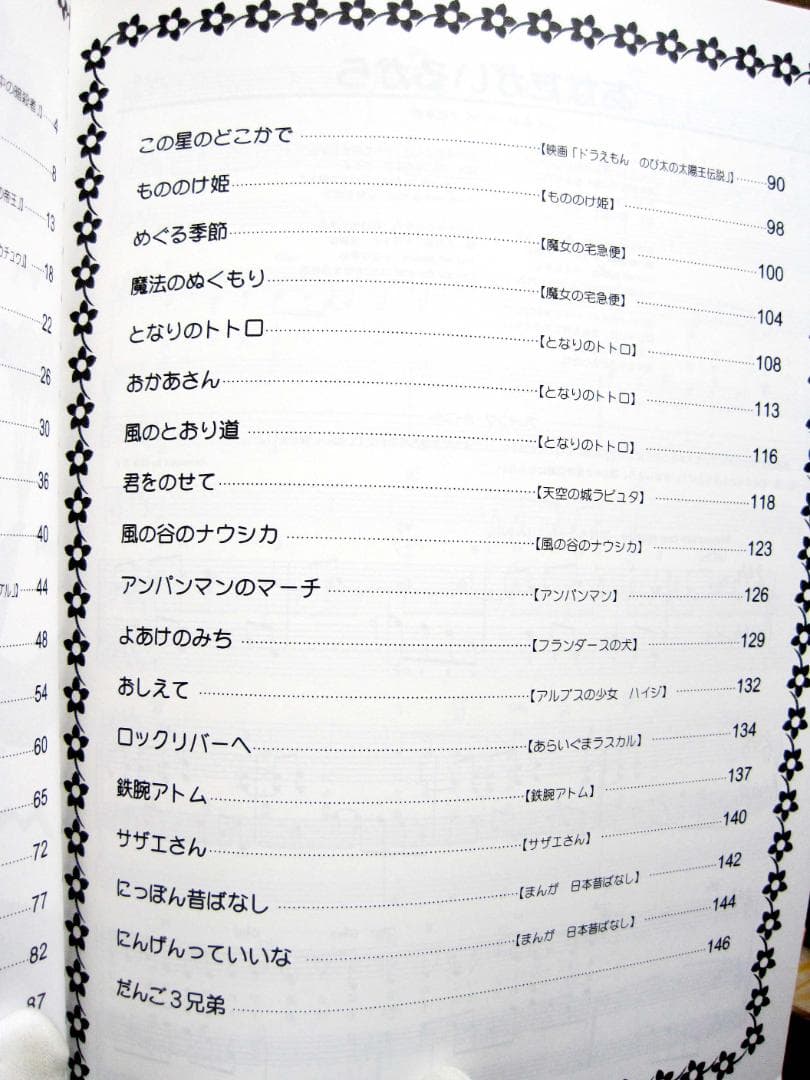 中の暗殺者』】 4
8
の帝王』】 13
カチュウ』】 18
22
26
30
36
40
アル』】 44
48
54
60
65
72
77
82
87
この星のどこかで 【映画「ドラえもん のび太の太陽王伝説」】 90
もののけ姫 【もののけ姫】 98
めぐる季節 【魔女の宅急便】 100
魔法のぬくもり 【魔女の宅急便】 104
となりのトトロ 【となりのトトロ】 108
おかあさん 【となりのトトロ】 113
風のとおり道 【となりのトトロ】 116
君をのせて 【天空の城ラピュタ】 118
風の谷のナウシカ 【風の谷のナウシカ】 123
アンパンマンのマーチ 【アンパンマン】 126
よあけのみち 【フランダースの犬】 129
おしえて 【アルプスの少女 ハイジ】 132
ロックリバーへ 【あらいぐまラスカル】 134
鉄腕アトム 【鉄腕アトム】 137
サザエさん 【サザエさん】 140
にっぽん昔ばなし 【まんが 日本昔ばなし】 142
にんげんっていいな 【まんが 日本昔ばなし】 144
だんご3兄弟 146